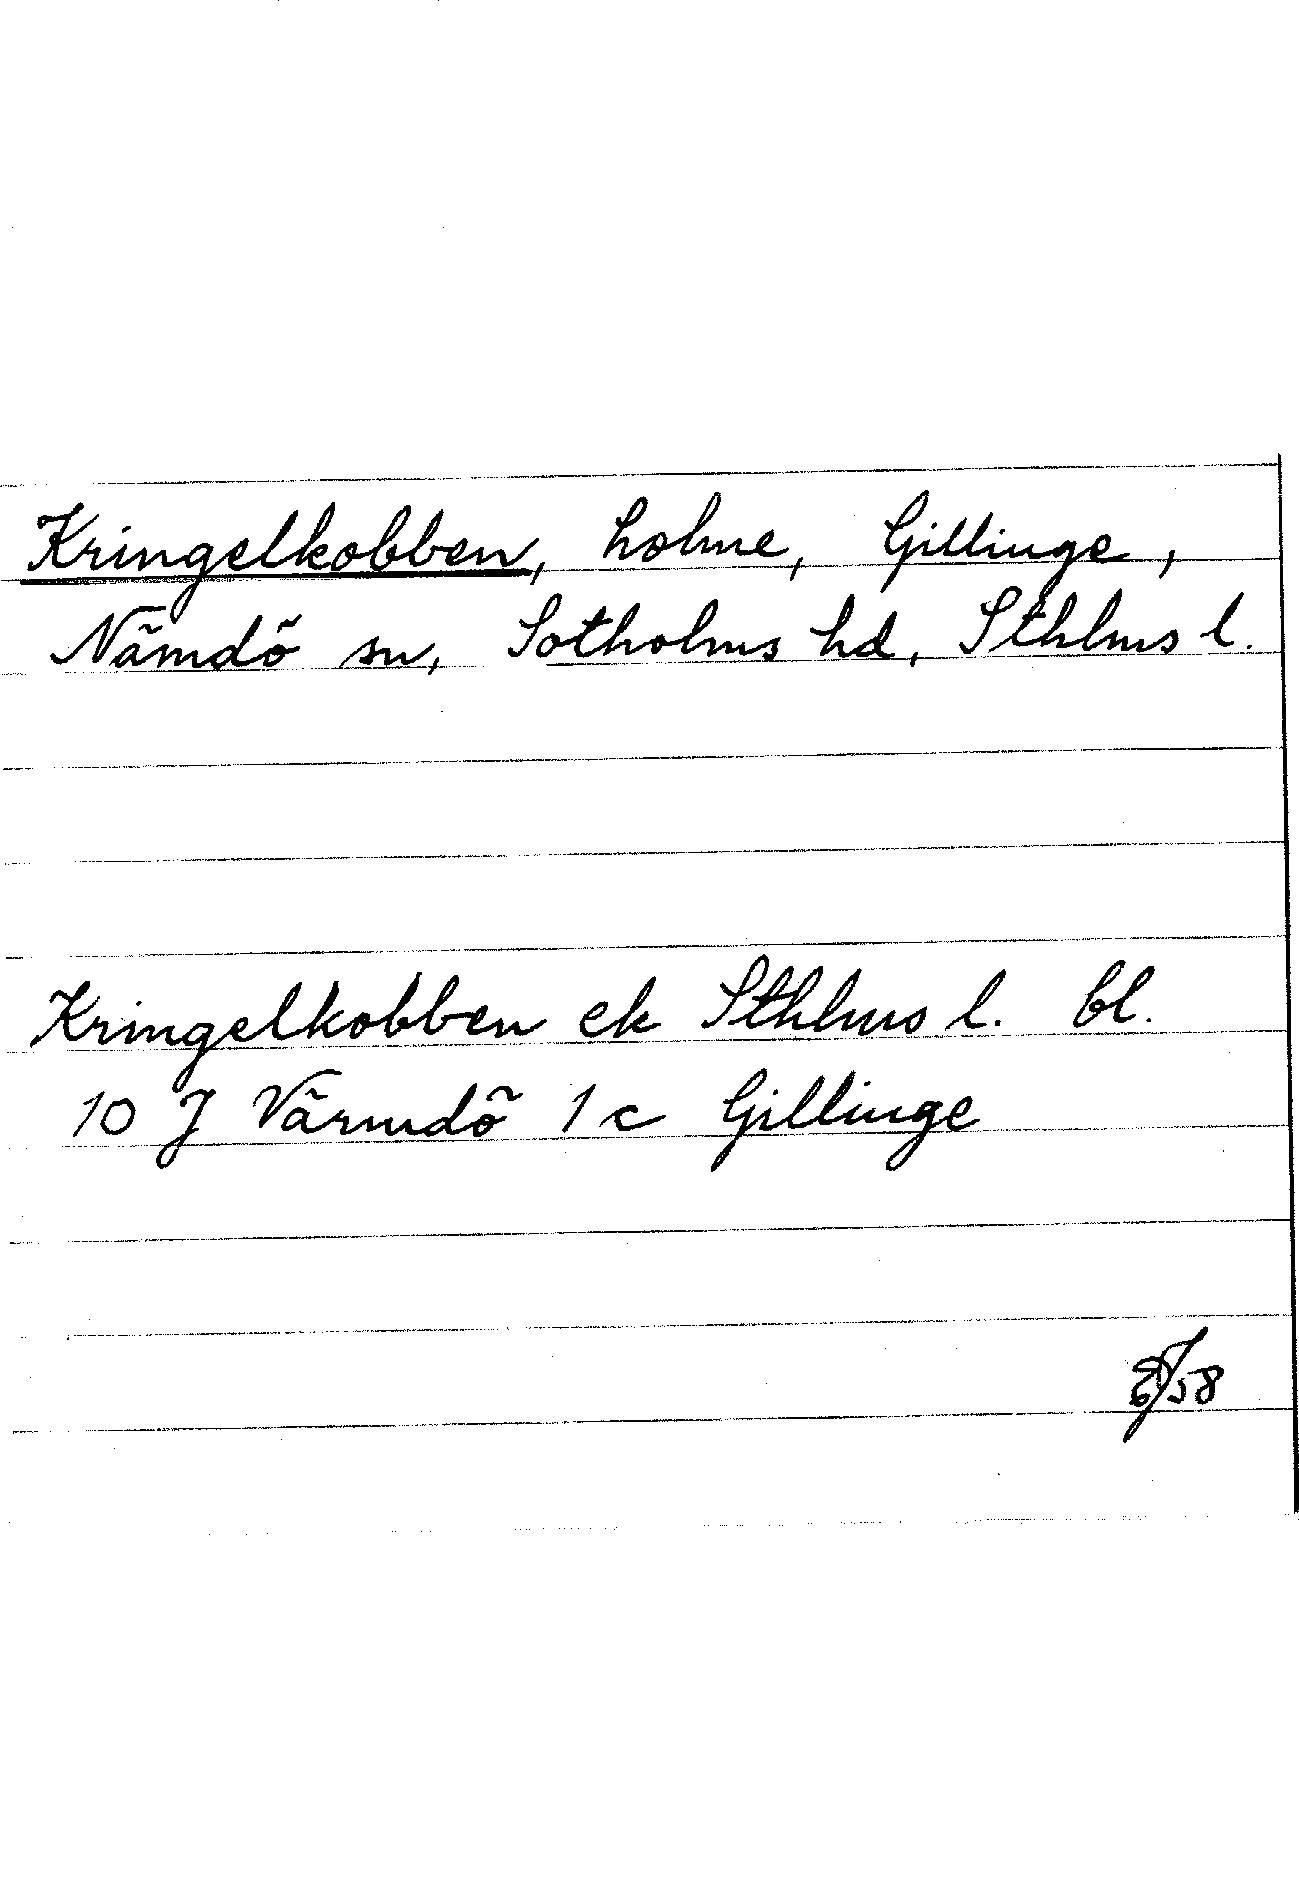 Kringelkobben, holme, Gillinge,
Nämdö sn, Sotholms hd, Sthlms l.
Kringelkobben ek Sthlms l. bl.
10 J Värmdö 1c Gillinge
/58